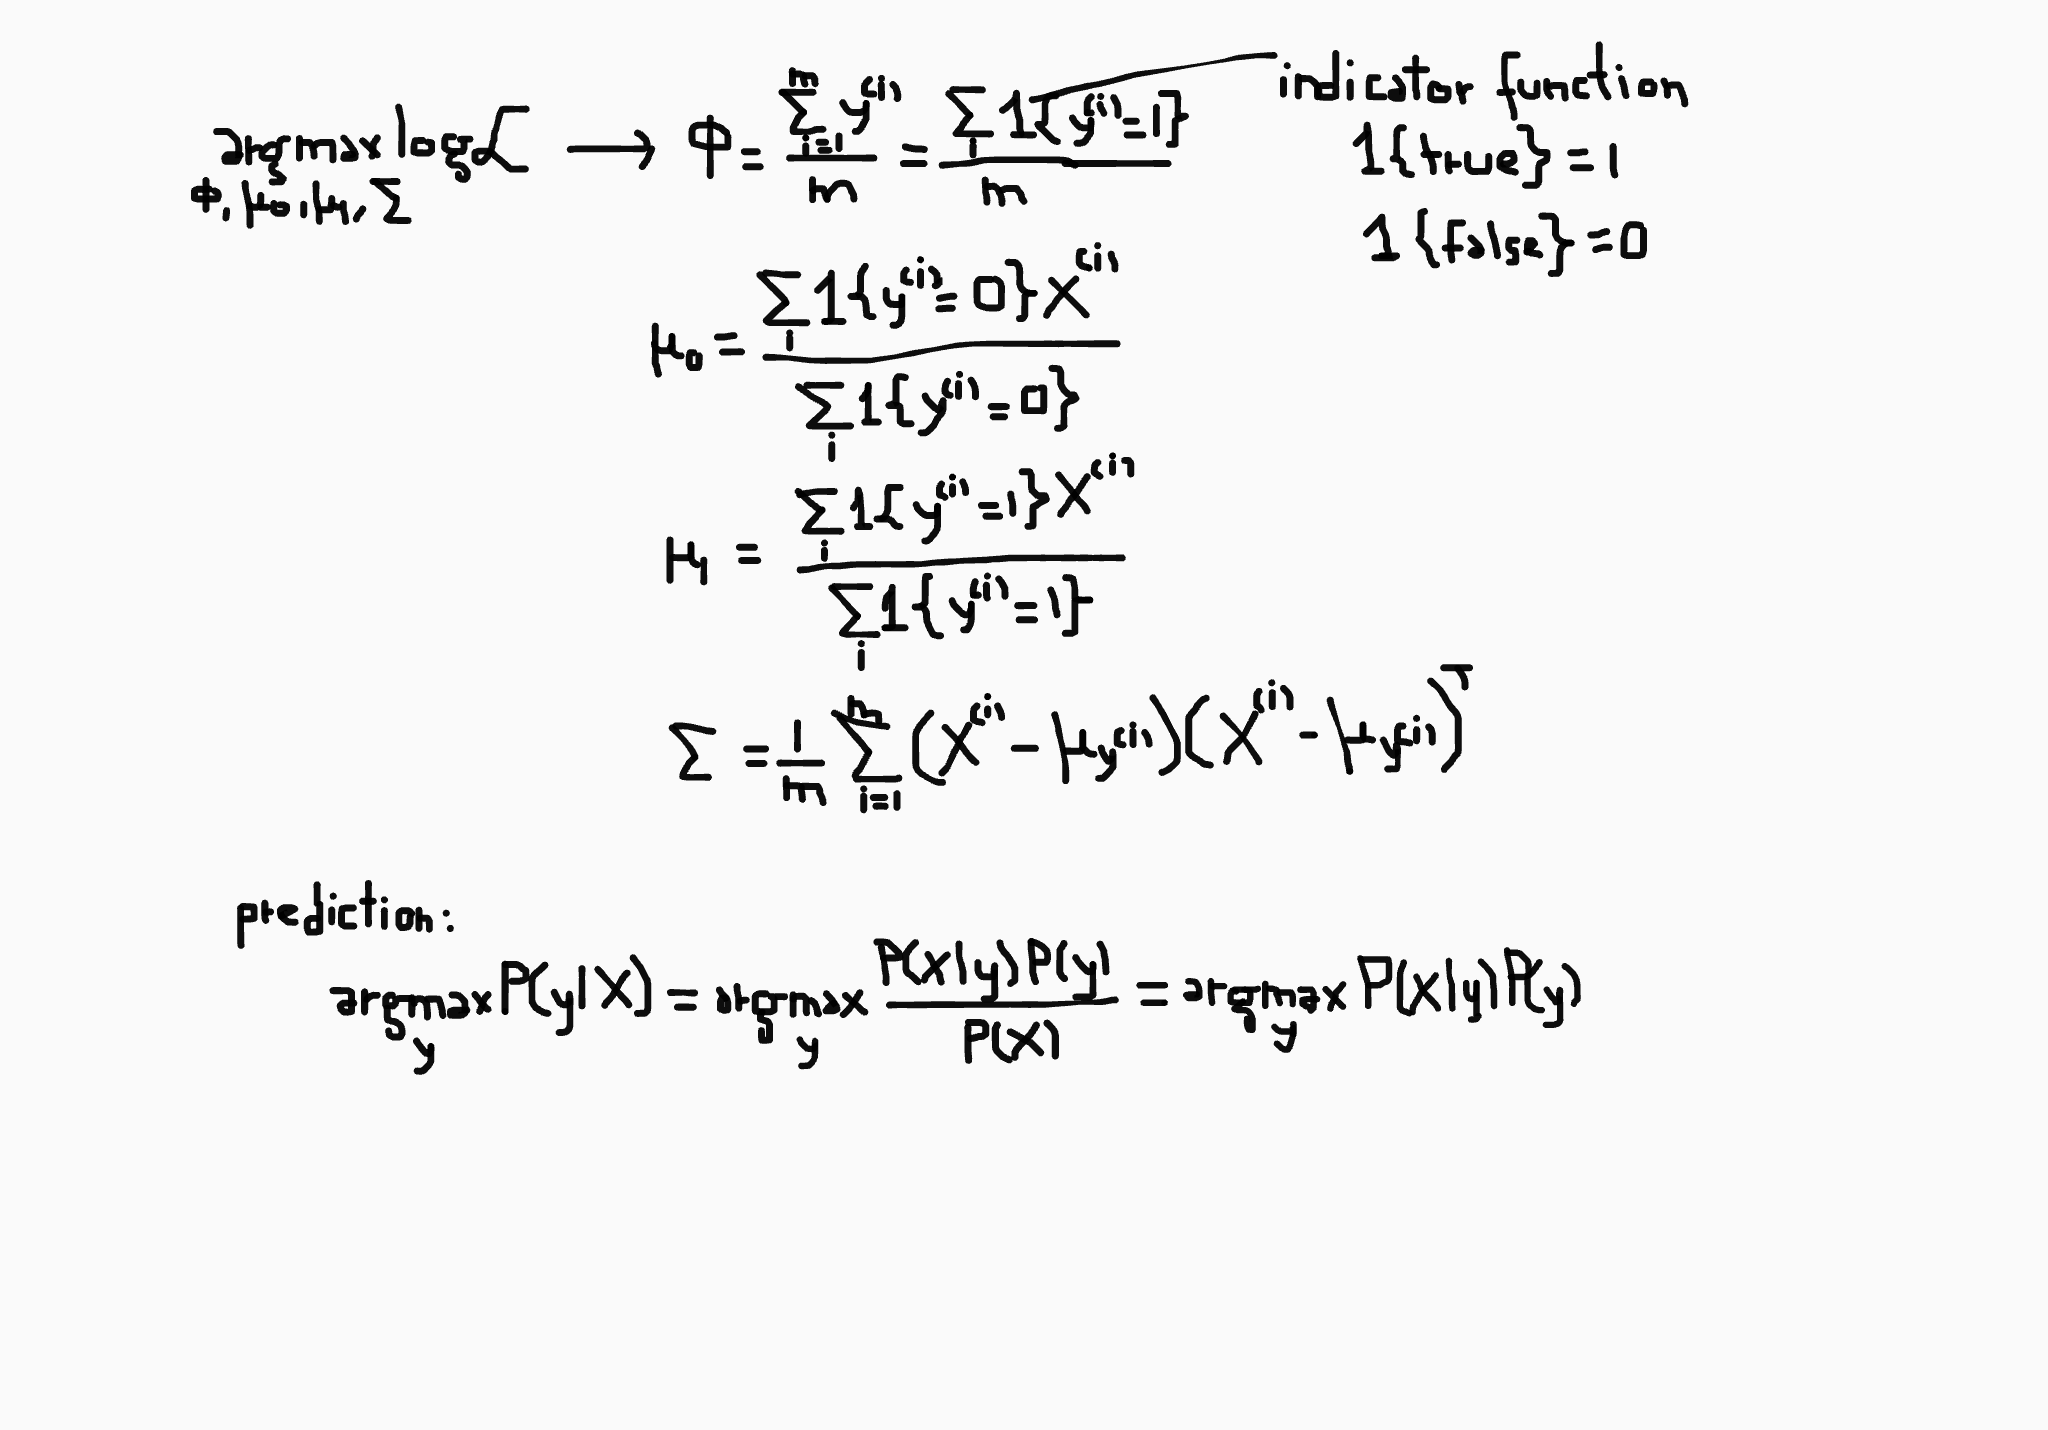 argmax log ℒ → Φ = ∑_{i=1}^{m} y^{(i)} / m = ∑_i 1{y^{(i)} = 1} / m
Φ, μ₀, μ₁, Σ
indicator function
1{true} = 1
1{false} = 0
μ₀ = ∑_i 1{y^{(i)} = 0} X^{(i)} / ∑_i 1{y^{(i)} = 0}
μ₁ = ∑_i 1{y^{(i)} = 1} X^{(i)} / ∑_i 1{y^{(i)} = 1}
Σ = 1/m ∑_{i=1}^{m} (X^{(i)} - μ_{y^{(i)}}) (X^{(i)} - μ_{y^{(i)}})^T
prediction:
argmax_y P(y|X) = argmax_y P(X|y) P(y) / P(X) = argmax_y P(X|y) P(y)